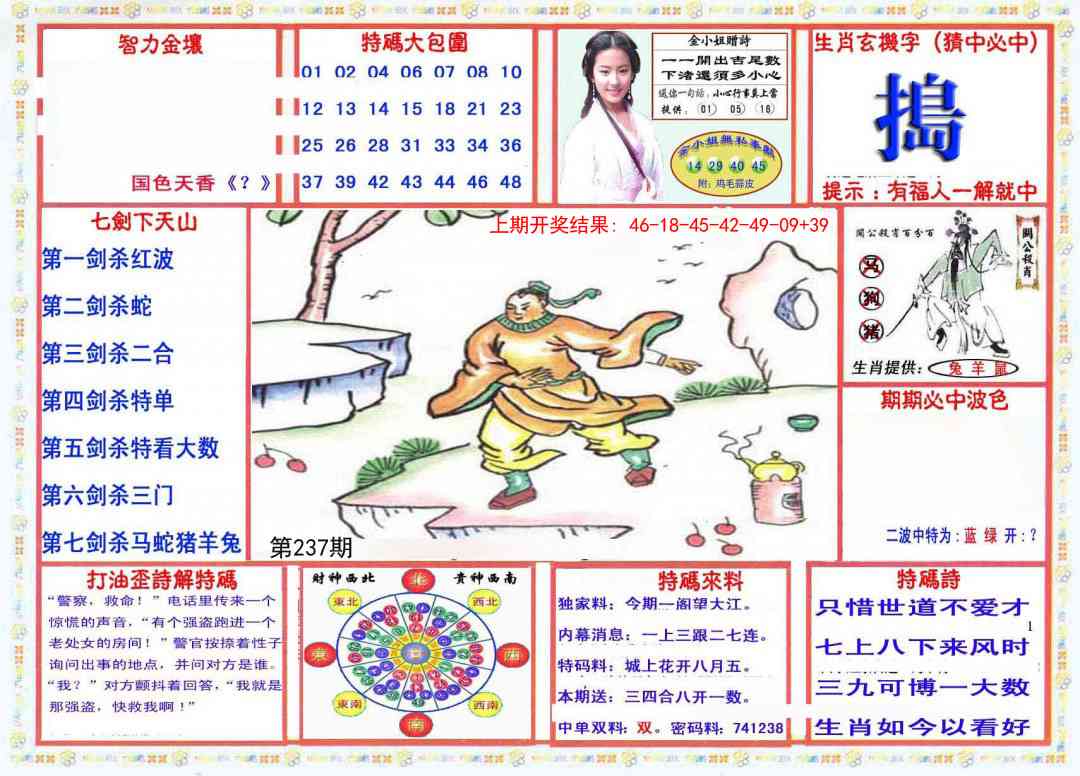 智力金壤
国色天香《？》
特碼大包圍
01 02 04 06 07 08 10
12 13 14 15 18 21 23
25 26 28 31 33 34 36
37 39 42 43 44 46 48
金小姐赠詩
一一開出吉尾數
下渚還須多小心
送你一句话，小心行事莫上當
提供：(01) (05) (16)
金小姐無私奉献
14 29 40 45
附：鸡毛蒜皮
生肖玄機字（猜中必中）
搗
提示：有福人一解就中
七劍下天山
第一剑杀红波
第二剑杀蛇
第三剑杀二合
第四剑杀特单
第五剑杀特看大数
第六剑杀三门
第七剑杀马蛇猪羊兔
上期开奖结果：46-18-45-42-49-09+39
第237期
關公殺肖百分百
關公殺肖
马
狗
猪
生肖提供：兔 羊 鼠
期期必中波色
二波中特为：蓝 绿 开：？
打油歪詩解特碼
“警察，救命！”电话里传来一个
惊慌的声音，“有个强盗跑进一个
老处女的房间！”警官按捺着性子
询问出事的地点，并问对方是谁。
“我？”对方颤抖着回答，“我就是
那强盗，快救我啊！”
財神西北 貴神西南
北
東北 西北
東 西
東南 西南
南
特碼來料
独家料：今期一阁望大江。
内幕消息：一上三跟二七连。
特码料：城上花开八月五。
本期送：三四合八开一数。
中单双料：双。密码料：741238
特碼詩
只惜世道不爱才
1
七上八下来风时
三九可博一大数
生肖如今以看好